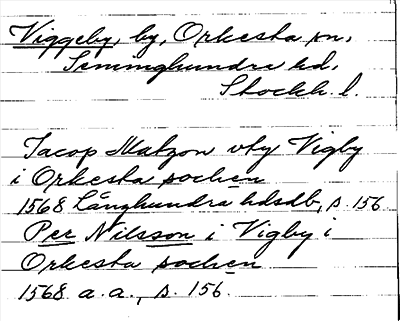 Viggeby, by, Orkesta sn,
Seminghundra hd,
Stockh. l.
Jacop Matzon vty Vigby
i Orkesta sochen
1568 Långhundra hdsdb, s. 156
Per Nilsson i Vigby i
Orkesta sochen
1568 a. a., s. 156.